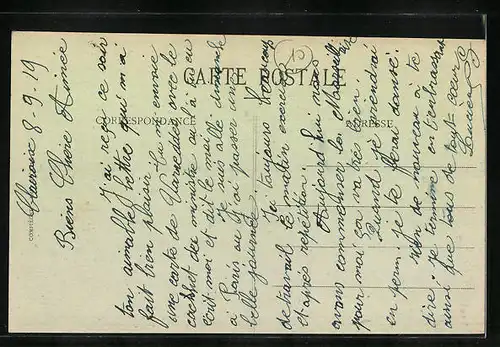 CARTE POSTALE
CORRESPONDANCE
ADRESSE
8-9-19
Biens Chère Aimée
J'ai reçu ce soir
ton aimable lettre qui m'a
fait bien plaisir. Tu me envoie
une carte de Marseille avec le
cachet du ministre ou à tu eu
tout moi et dit le moi.
Je suis allé dimanche
à Paris ou j'ai passer une
belle journée
J'ai toujours beaucoup
de travail le matin exercice
et après répétition.
Aujourd'hui nous
avons commencer les
pour moi ça va très bien.
Quand je viendrai
en perm. je te ferai danser.
Rien de nouveau à te
dire. je termine en t'embrassant
ainsi que tous de tout cœur
Lucien